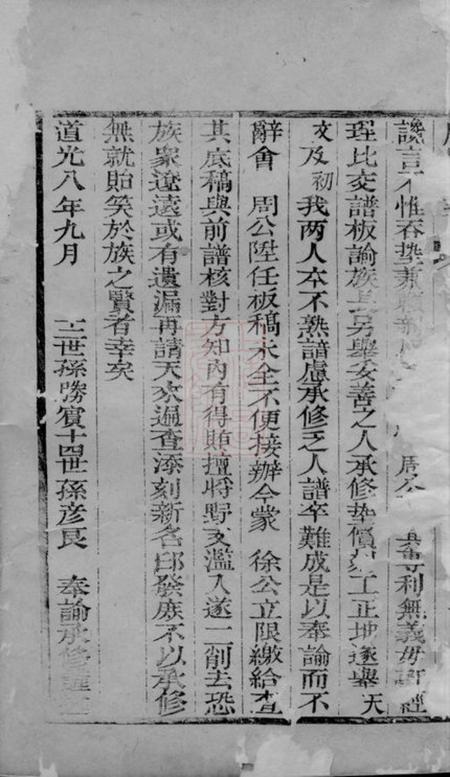 讒言不惟吞墊兼 周公 專利無義毋許經
理比交譜板諭族長另舉妥善之人承修墊償刻工正地遂舉天
文及初我两人本不熟譜慮承修乏人譜卒難成是以奉諭而不
辭會 周公陞任板稿未全不便接辦今蒙 徐公立限繳給查
其底稿與前譜核對方知內有得賄擅將野支濫入遂一削去恐
族衆遼遠或有遺漏再請天次過查添刻新名卽發庶不以承修
無就貽笑於族之賢者幸矣
道光八年九月 世孫勝賓十四世孫彥良 奉諭承修